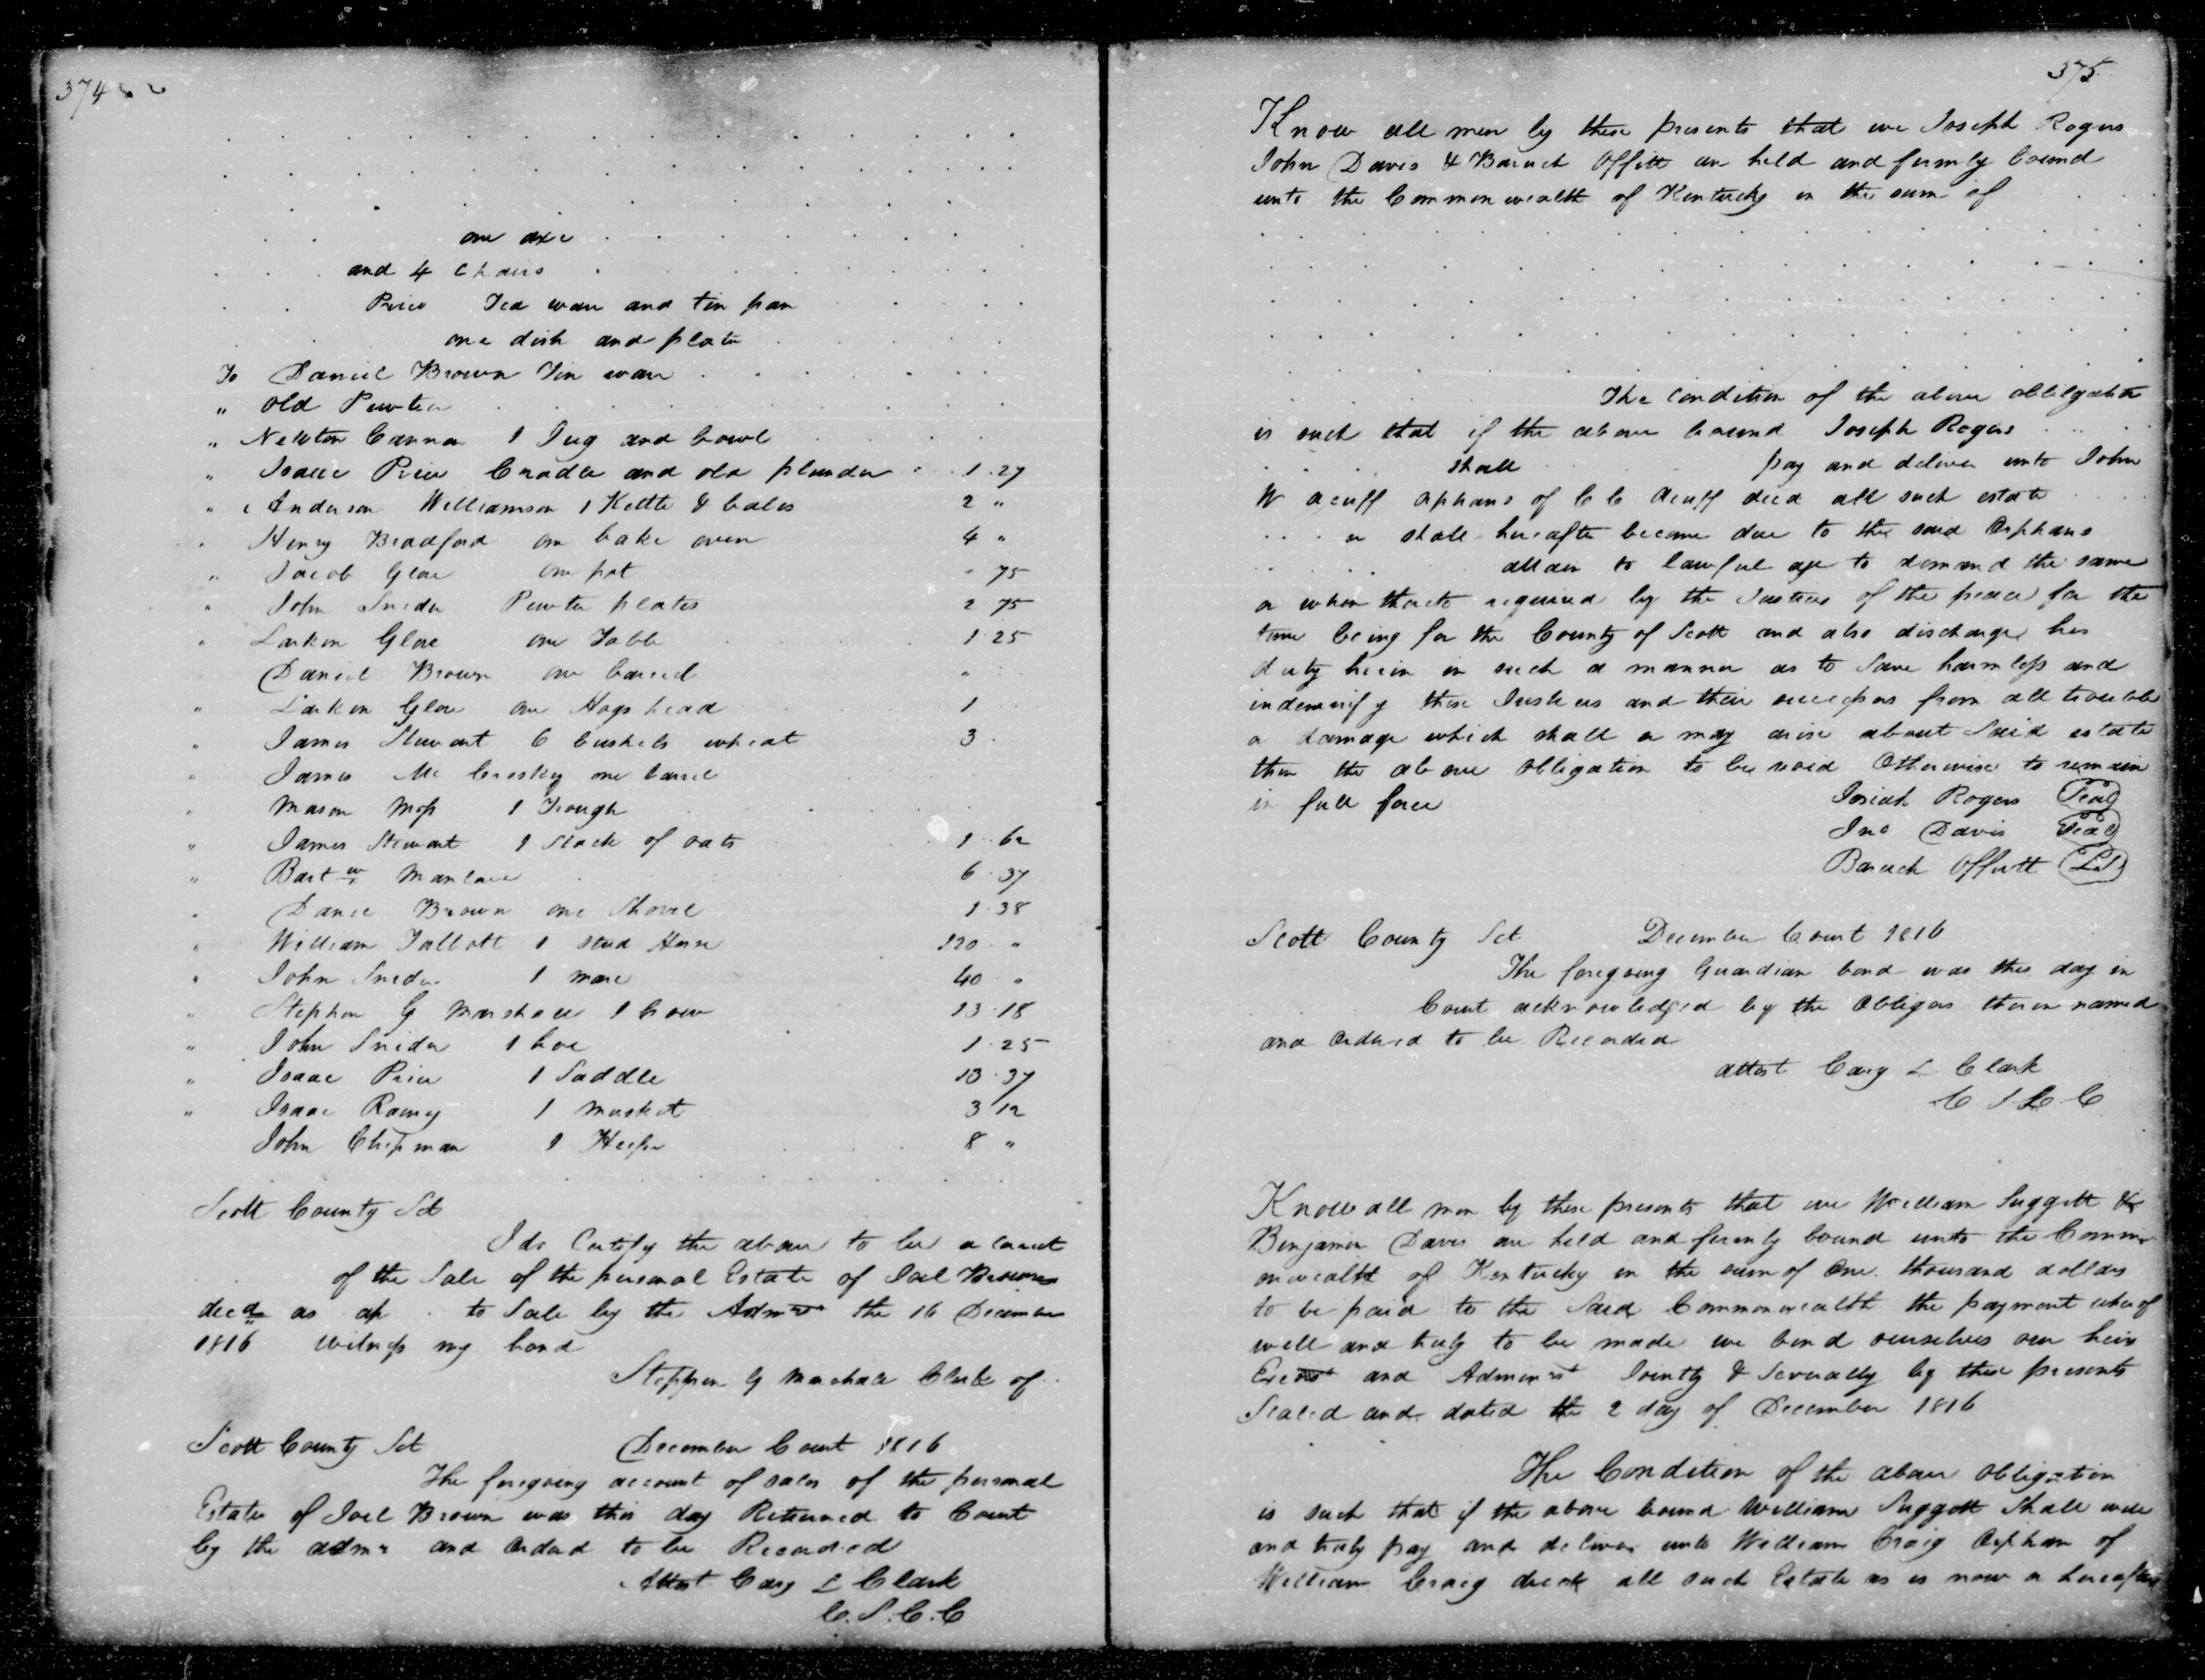 374
one axe
and 4 Chairs
Price Tea ware and tin pan
one dish and plate
To Daniel Brown Tin ware
" Old Pewter
" Newton Cannon 1 Jug and bowl
" Isaac Price Cradle and old plunder 1.27
" Anderson Williamson 1 Kettle & bales 2 "
" Henry Bradford one bake oven 4 "
" Jacob Glore one pot " 75
" John Snider Pewter plates 2 75
" Larkin Glore one Table 1.25
Daniel Brown one barrel "
" Larkin Glore one Hogshead 1
" James Stewart 6 bushels wheat 3
" James Mc Croskey one barrel
" Mason Moss 1 Trough
" James Stewart 1 Stack of oats 1.62
" Bart w 6.37
" Danie Brown one Shovel 1.38
" William Talbott 1 stud Horse 120 "
" John Snider 1 mare 40 "
" Stephen G Marshall 1 cow 13.18
" John Snider 1 hoe 1.25
" Isaac Price 1 Saddle 13.37
" Isaac Ramey 1 Musket 3 12
John Chipman 1 Heifer 8 "
Scott County Sct
I do Certify the above to be a correct
of the Sale of the personal Estate of Joel Brown
decd as ap to Sale by the Admr the 16 December
1816 witness my hand
Stephen G Marshall Clerk of
Scott County Sct December Court 1816
The foregoing account of sales of the personal
Estate of Joel Brown was this day Returned to Court
by the admr and Ordered to be Recorded
Attest Cary L Clark
C.S.C.C
375
Know all men by these presents that we Joseph Rogers
John Davis & Baruch Offitt are held and firmly bound
unto the Commonwealth of Kentucky in the sum of
The condition of the above obligation
is such that if the above bound Joseph Rogers
shall pay and deliver unto John
W Acuff orphans of C C Acuff decd all such estate
or shall hereafter become due to the said Orphans
attain to lawful age to demand the same
or when thereto required by the Justices of the peace for the
time being for the County of Scott and also discharge his
duty herein in such a manner as to Save harmless and
indemnify these Justices and their successors from all trouble
or damage which shall or may arise about Said estate
then the above obligation to be void Otherwise to remain
in full force Josiah Rogers Seal
Jno Davis Seal
Baruch Offutt LS
Scott County Sct December Court 1816
The foregoing Guardian bond was this day in
Court acknowledged by the Obligors therein named
and Ordered to be Recorded
attest Cary L Clark
C S C C
Know all men by these presents that we William Suggett &
Benjamin Davis are held and firmly bound unto the Comm
onwealth of Kentucky in the sum of One thousand dollars
to be paid to the Said Commonwealth the payment whereof
well and truly to be made we bind ourselves our heirs
and Jointly & Severally by these presents
Sealed and dated the 2 day of December 1816
The Condition of the above Obligation
is such that if the above bound William Suggett Shall well
and truly pay and deliver unto William Craig Orphan of
William Craig decd all such Estate as is now or hereafter